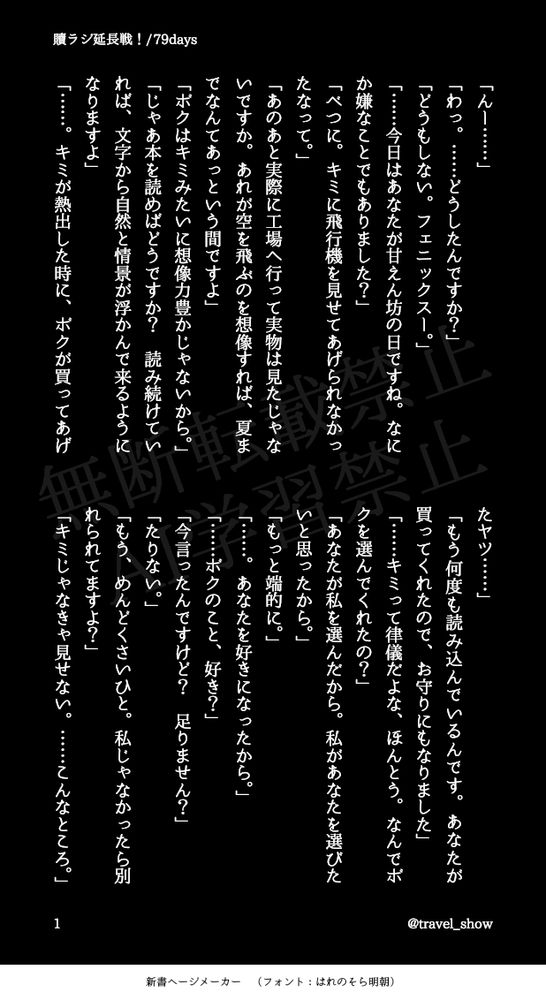 贖ラジ延長戦！/79days
「んー……」
「わっ。……どうしたんですか？」
「どうもしない。フェニックスー。」
「……今日はあなたが甘えん坊の日ですね。なに
か嫌なことでもありました？」
「べつに。キミに飛行機を見せてあげられなかっ
たなって。」
「あのあと実際に工場へ行って実物は見たじゃな
いですか。あれが空を飛ぶのを想像すれば、夏ま
でなんてあっという間ですよ」
「ボクはキミみたいに想像力豊かじゃないから。」
「じゃあ本を読めばどうですか？　読み続けてい
れば、文字から自然と情景が浮かんで来るように
なりますよ」
「……。キミが熱出した時に、ボクが買ってあげ
たヤツ……」
「もう何度も読み込んでいるんです。あなたが
買ってくれたので、お守りにもなりました」
「……キミって律儀だよな、ほんとう。なんでボ
クを選んでくれたの？」
「あなたが私を選んだから。私があなたを選びた
いと思ったから。」
「もっと端的に。」
「……。あなたを好きになったから。」
「……ボクのこと、好き？」
「今言ったんですけど？　足りません？」
「たりない。」
「もう、めんどくさいひと。私じゃなかったら別
れられてますよ？」
「キミじゃなきゃ見せない。……こんなところ。」
無断転載禁止
AI学習禁止
1
@travel_show
新書ページメーカー　（フォント：はれのそら明朝）